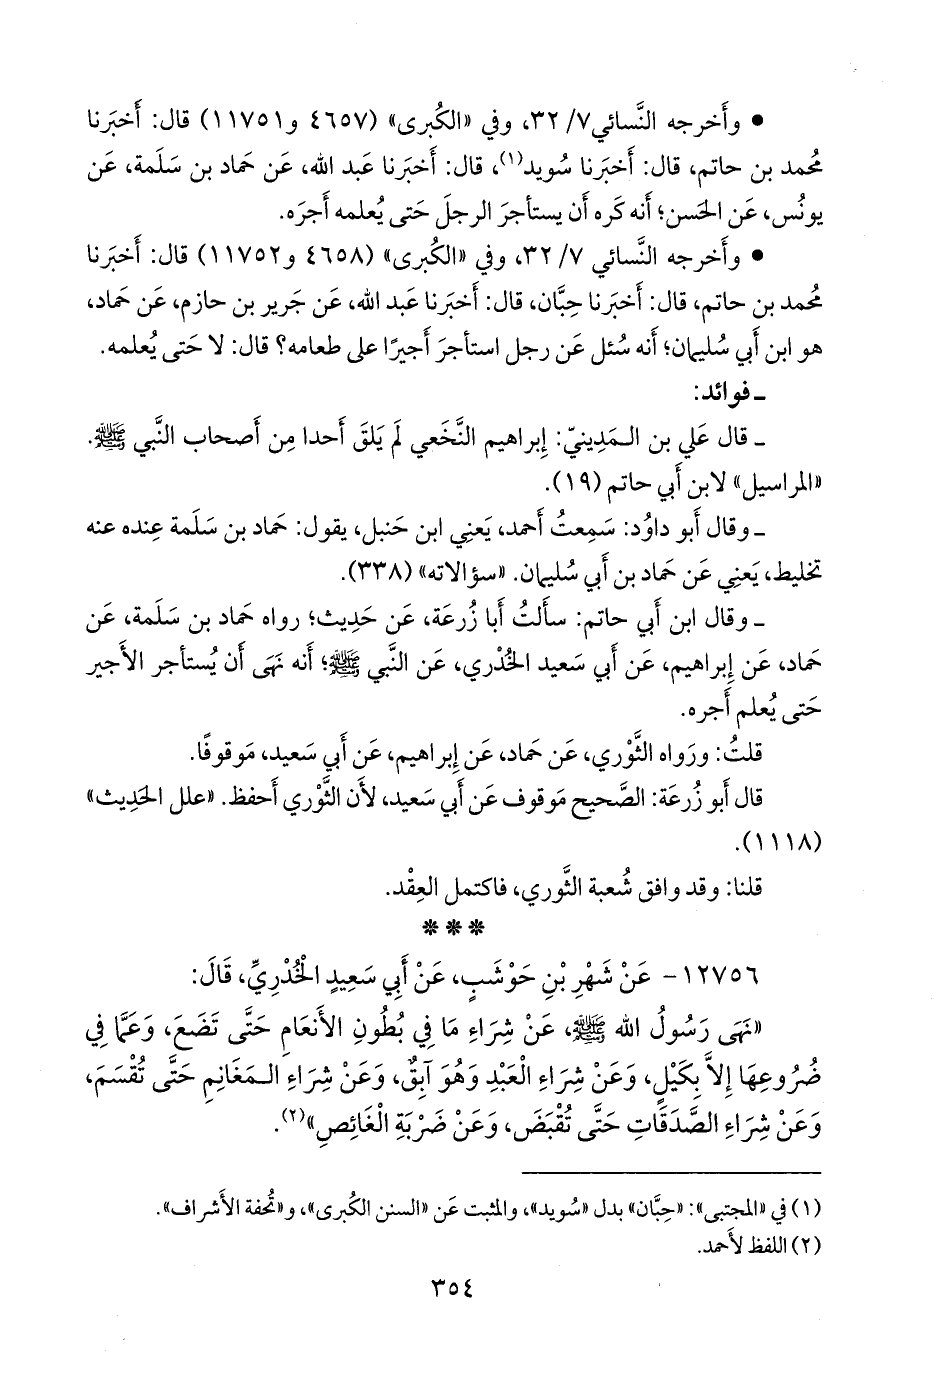 • وأَخرجه النَّسائي٧/ ٣٢، وفي «الكُبرى» (٤٦٥٧ و١١٧٥١) قال: أَخبَرنا
مُحمد بن حاتم، قال: أَخبَرنا سُويد(١)، قال: أَخبَرنا عَبد الله، عَن حَماد بن سَلَمة، عَن
يونُس، عَن الحَسن؛ أَنه كَره أَن يستأجرَ الرجلَ حَتى يُعلمه أَجرَه.
• وأَخرجه النَّسائي ٧/ ٣٢، وفي «الكُبرى» (٤٦٥٨ و١١٧٥٢) قال: أَخبَرنا
مُحمد بن حاتم، قال: أَخبَرنا حِبَّان، قال: أَخبَرنا عَبد الله، عَن جَرير بن حازم، عَن حَماد،
هو ابن أَبي سُليمان؛ أَنه سُئل عَن رجل استأجرَ أَجيرًا على طعامه؟ قال: لا حَتى يُعلمه.
ـ فوائد:
ـ قال عَلي بن الـمَدِينيّ: إِبراهيم النَّخَعي لَم يَلقَ أَحدا مِن أَصحاب النَّبي ﷺ.
«المراسيل» لابن أَبي حاتم (١٩).
ـ وقال أَبو داوُد: سَمِعتُ أَحمد، يَعني ابن حَنبل، يقول: حَماد بن سَلَمة عِنده عنه
تخليط، يَعنِي عَن حَماد بن أَبي سُليمان. «سؤالاته» (٣٣٨).
ـ وقال ابن أَبي حاتم: سأَلتُ أَبا زُرعَة، عَن حَدِيث؛ رواه حَماد بن سَلَمة، عَن
حَماد، عَن إِبراهيم، عَن أَبي سَعيد الخُدْري، عَن النَّبي ﷺ؛ أَنه نَهَى أَن يُستأجر الأَجير
حَتى يُعلم أَجره.
قلتُ: ورَواه الثَّوْري، عَن حَماد، عَن إِبراهيم، عَن أَبي سَعيد، مَوقوفًا.
قال أَبو زُرعَة: الصَّحيح مَوقوف عَن أَبي سَعيد، لأَن الثَّوْري أَحفظ. «علل الحَدِيث»
(١١١٨).
قلنا: وقد وافق شُعبة الثَّوري، فاكتمل العِقْد.
***
١٢٧٥٦- عَنْ شَهْرِ بْنِ حَوْشَبٍ، عَنْ أَبِي سَعِيدٍ الْخُدْرِيِّ، قَالَ:
«نَهَى رَسُولُ الله ﷺ، عَنْ شِرَاءِ مَا فِي بُطُونِ الأَنعَامِ حَتَّى تَضَعَ، وَعَمَّا فِي
ضُرُوعِهَا إِلاَّ بِكَيْلٍ، وَعَنْ شِرَاءِ الْعَبْدِ وَهُوَ آبِقٌ، وَعَنْ شِرَاءِ الـمَغَانِمِ حَتَّى تُقْسَمَ،
وَعَنْ شِرَاءِ الصَّدَقَاتِ حَتَّى تُقْبَضَ، وَعَنْ ضَرْبَةِ الْغَائِصِ»(٢).
(١) في «المجتبى»: «حِبَّان» بدل «سُويد»، والمثبت عَن «السنن الكُبرى»، و«تُحفة الأَشراف».
(٢) اللفظ لأَحمد.
٣٥٤